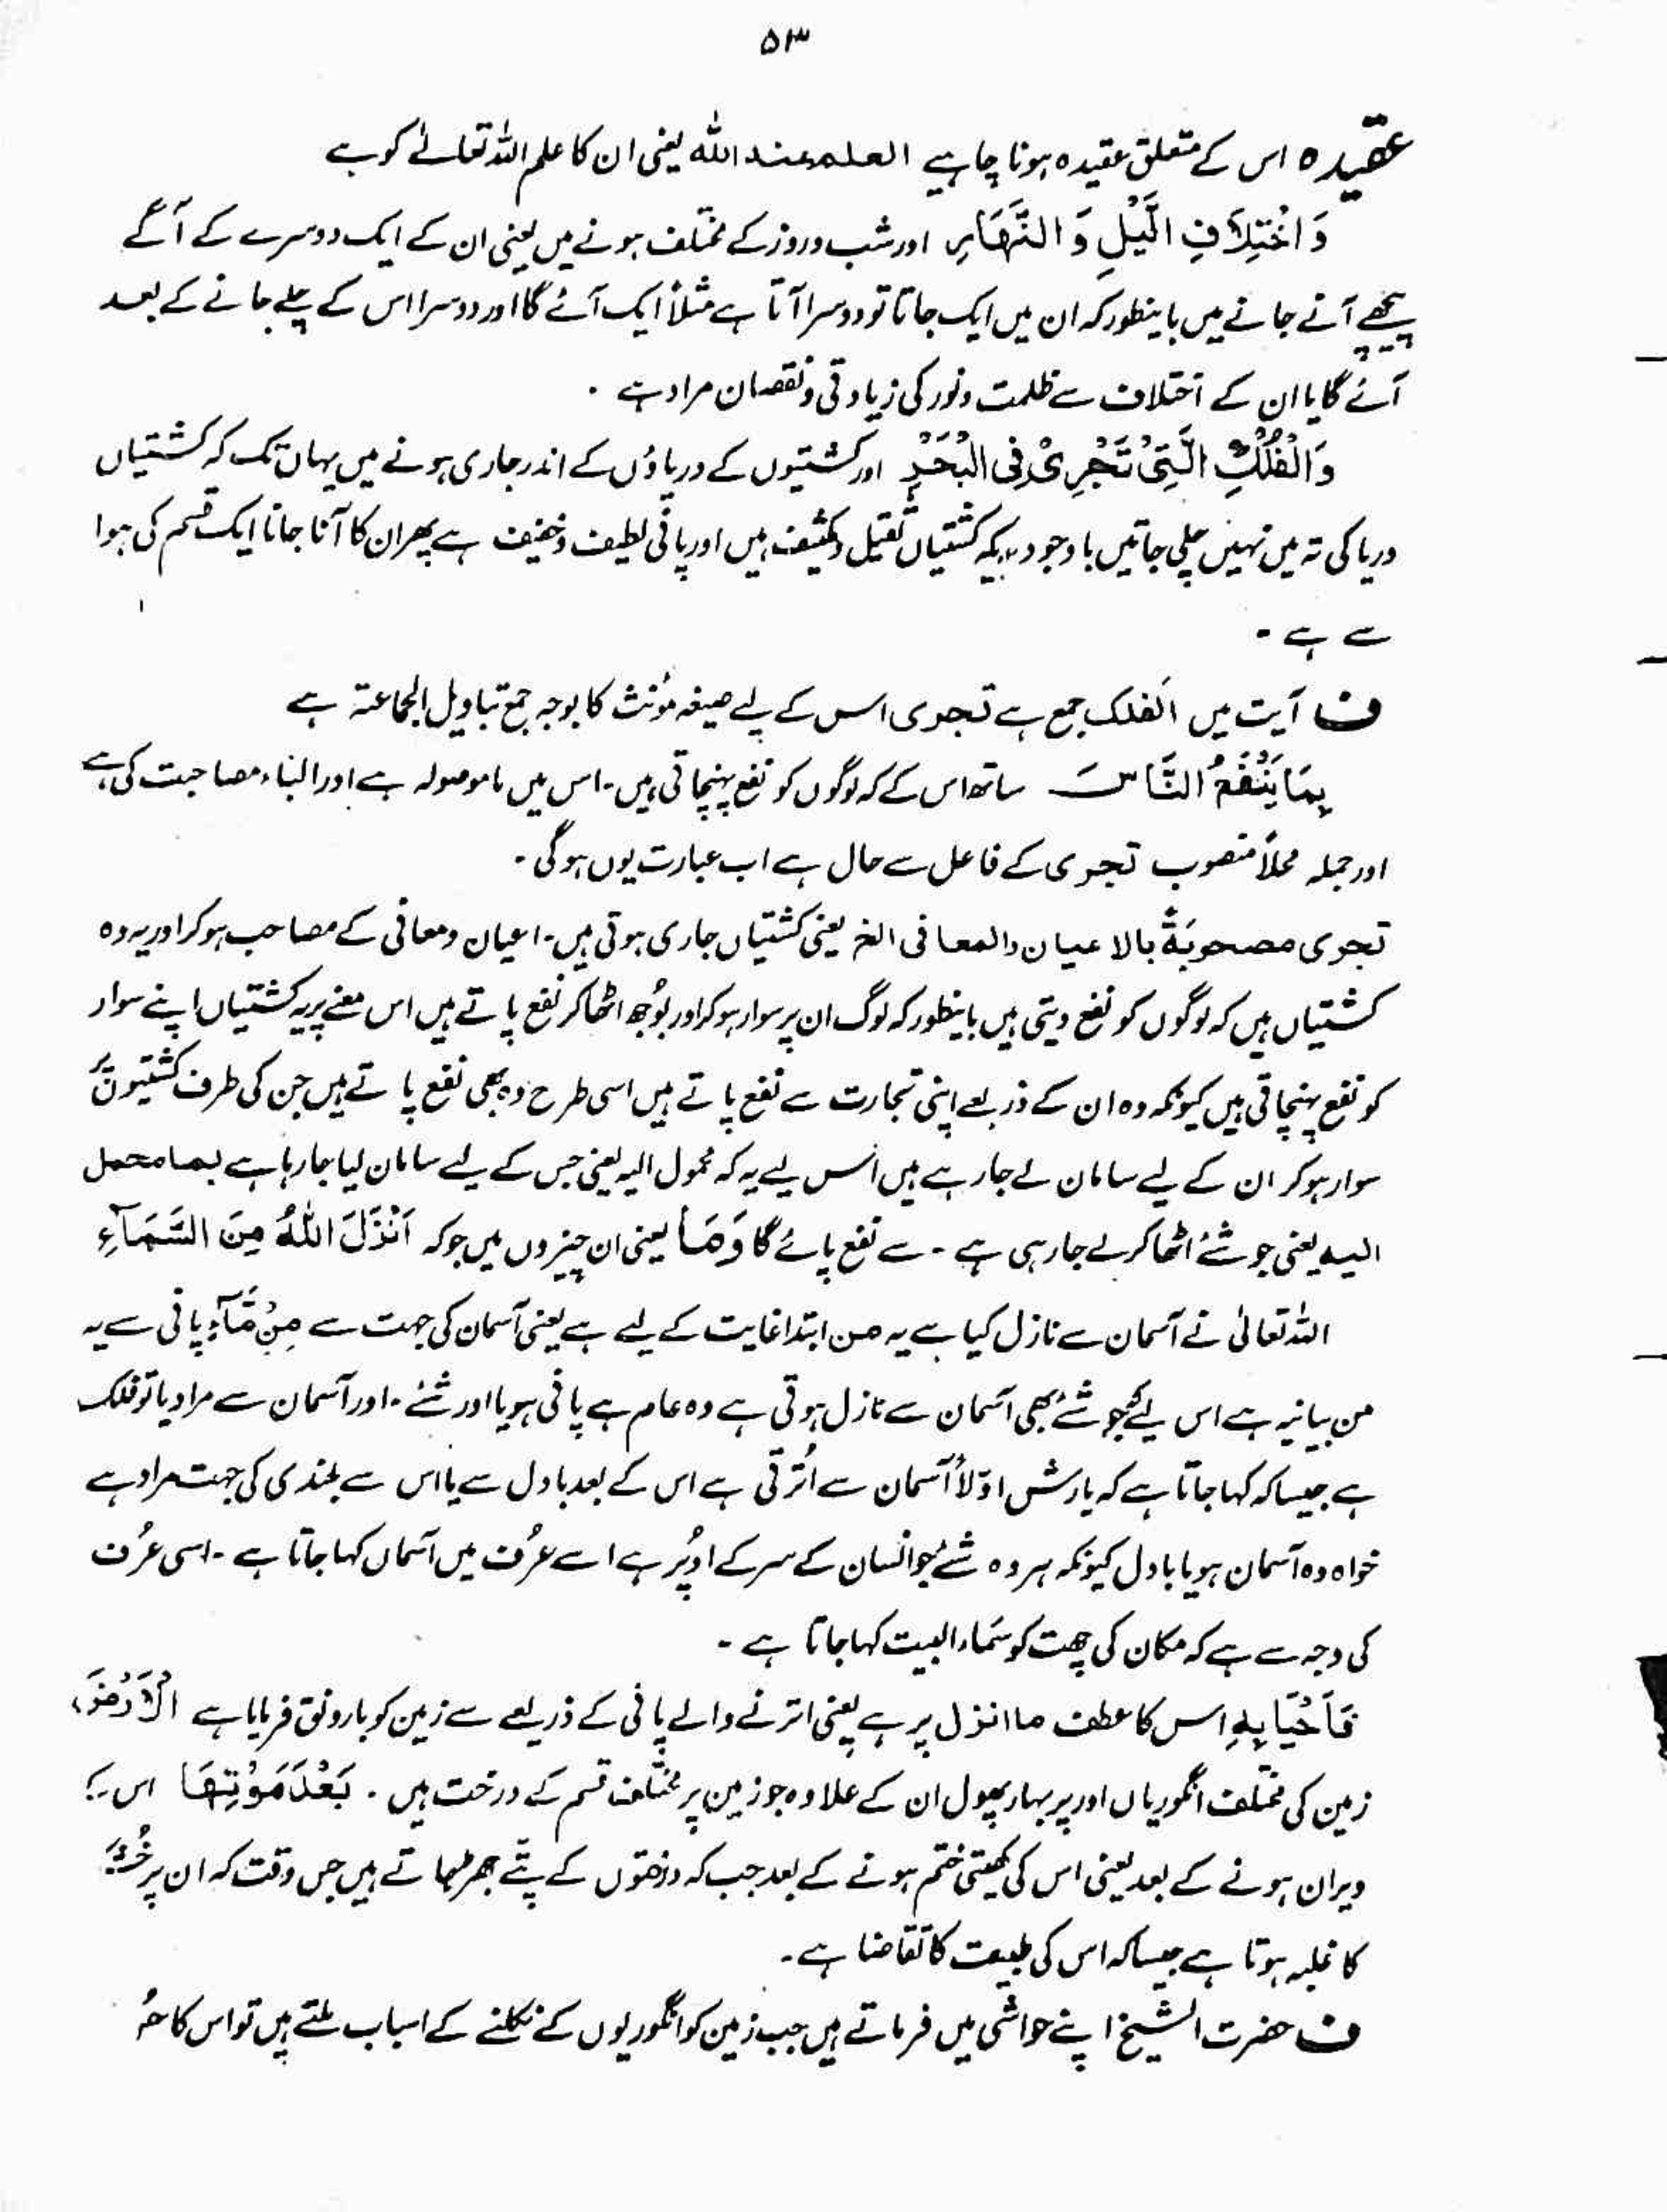 ۵۳
عقیدہ اس کے متعلق عقیدہ ہونا چاہیے العلم عند اللہ یعنی ان کا علم اللہ تعالےٰ کو ہے
وَاخْتِلَافِ الَّیْلِ وَ النَّھَارِ اور شب و روز کے مختلف ہونے میں یعنی ان کے ایک دوسرے کے آگے
پیچھے آنے جانے میں بایںطور کہ ان میں ایک جاتا تو دوسرا آتا ہے مثلاً ایک آئے گا اور دوسرا اس کے چلے جانے کے بعد
آئے گا یا ان کے اختلاف سے ظلمت و نور کی زیادتی و نقصان مراد ہے ۔
وَالْفُلْکِ الَّتِیْ تَجْرِیْ فِی الْبَحْرِ اور کشتیوں کے دریاؤں کے اندر جاری ہونے میں یہاں تک کہ کشتیاں
دریا کی تہ میں نہیں چلی جاتیں باوجودیکہ کشتیاں ثقیل و کثیف ہیں اور پانی لطیف و خفیف ہے پھر ان کا آنا جانا ایک قسم کی ہوا
سے ہے ۔
ف آیت میں الفلک جمع ہے تجری اس کے لیے صیغہ مؤنث کا بوجہ جمع بتاویل الجماعۃ ہے
بِمَا یَنْفَعُ النَّاسَ ساتھ اس کے کہ لوگوں کو نفع پہنچاتی ہیں ۔ اس میں ما موصولہ ہے اور الباء مصاحبت کی ہے
اور جملہ محلاً منصوب تجری کے فاعل سے حال ہے اب عبارت یوں ہوگی ۔
تجری مصحوبۃً بالاعیان والمعانی الخ یعنی کشتیاں جاری ہوتی ہیں ۔ اعیان و معانی کے مصاحب ہو کر اور یہ وہ
کشتیاں ہیں کہ لوگوں کو نفع دیتی ہیں بایںطور کہ لوگ ان پر سوار ہو کر اور بُوجھ اٹھا کر نفع پاتے ہیں اس معنے پر یہ کشتیاں اپنے سوار
کو نفع پہنچاتی ہیں کیونکہ وہ ان کے ذریعے اپنی تجارت سے نفع پاتے ہیں اسی طرح وہ بھی نفع پاتے ہیں جن کی طرف کشتیوں پر
سوار ہو کر ان کے لیے سامان لے جا رہے ہیں اس لیے یہ کہ محمول الیہ یعنی جس کے لیے سامان لیا جا رہا ہے بما محمل
الیہ یعنی جو شئے اٹھا کر لے جا رہی ہے ۔ سے نفع پائے گا وَمَا یعنی ان چیزوں میں جو کہ اَنْزَلَ اللہُ مِنَ السَّمَآءِ
اللہ تعالیٰ نے آسمان سے نازل کیا ہے یہ من ابتدا غایت کے لیے ہے یعنی آسمان کی جہت سے مِنْ مَّآءٍ پانی سے یہ
من بیانیہ ہے اس لیے کہ جو شئے بھی آسمان سے نازل ہوتی ہے وہ عام ہے پانی ہو یا اور شئے ۔ اور آسمان سے مراد یا تو فلک
ہے جیسا کہ کہا جاتا ہے کہ بارش اوّلاً آسمان سے اُترتی ہے اس کے بعد بادل سے یا اس سے بلندی کی جہت مراد ہے
خواہ وہ آسمان ہو یا بادل کیونکہ ہر وہ شئے جو انسان کے سر کے اوپر ہے اسے عرُف میں آسماں کہا جاتا ہے ۔ اسی عرُف
کی وجہ سے ہے کہ مکان کی چھت کو سَماء البیت کہا جاتا ہے ۔
فَاَحْیَا بِہِ اس کا عطف ما انزل پر ہے یعنی اترنے والے پانی کے ذریعے سے زمین کو بارونق فرمایا ہے الْاَرْضَ،
زمین کی مختلف انگوریاں اور پر بہار پھول ان کے علاوہ جو زمین پر مختلف قسم کے درخت ہیں ۔ بَعْدَ مَوْتِھَا اس کے
ویران ہونے کے بعد یعنی اس کی کھیتی ختم ہونے کے بعد جب کہ درختوں کے پتّے جھڑ جاتے ہیں جس وقت کہ ان پر
کا غلبہ ہوتا ہے جیسا کہ اس کی طبیعت کا تقاضا ہے ۔
ف حضرت الشیخ اپنے حواشی میں فرماتے ہیں جب زمین کو انگوریوں کے نکلنے کے اسباب ملتے ہیں تو اس کا